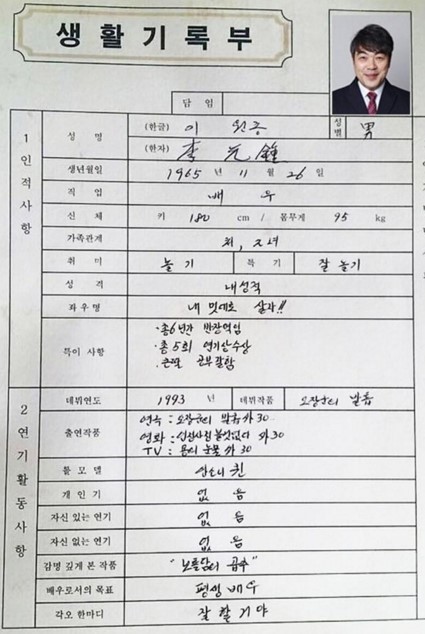 생활기록부
담임
1 인적사항
성명 (한글) 이 원종 성별 男
(한자) 李 元 鍾
생년월일 1965 년 11 월 26 일
직업 배 우
신체 키 180 cm / 몸무게 95 kg
가족관계 처, 2녀
취미 놀기 특기 잘 놀기
성격 내성적
좌우명 내 멋대로 살자!!
특이 사항 ·총6년간 반장역임
·총 5회 연기상수상
·큰딸 공부잘함
2 연기활동사항
데뷔연도 1993 년 데뷔작품 오장군의 발톱
출연작품 연극 : 오장군의 발톱외 30
영화 : 인정사정 볼것없다 외 30
TV : 용의 눈물 외 30
롤모델 안소니 퀸
개인기 없 음
자신 있는 연기 없 음
자신 없는 연기 없 음
감명 깊게 본 작품 "노틀담의 곱추"
배우로서의 목표 평생 배우
각오 한마디 잘 할거야